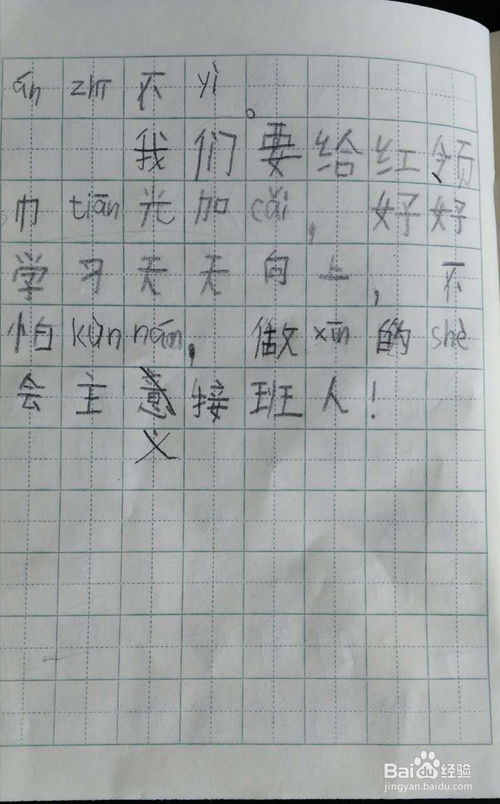 ān zhī 不 yì。
我们要给红领
巾 tiān 光加 cǎi，好好
学习天天向上，不
怕 kùn nán，做 xīn 的 shè
会主意接班人！
义
Baidu 经验
jingyan.baidu.com